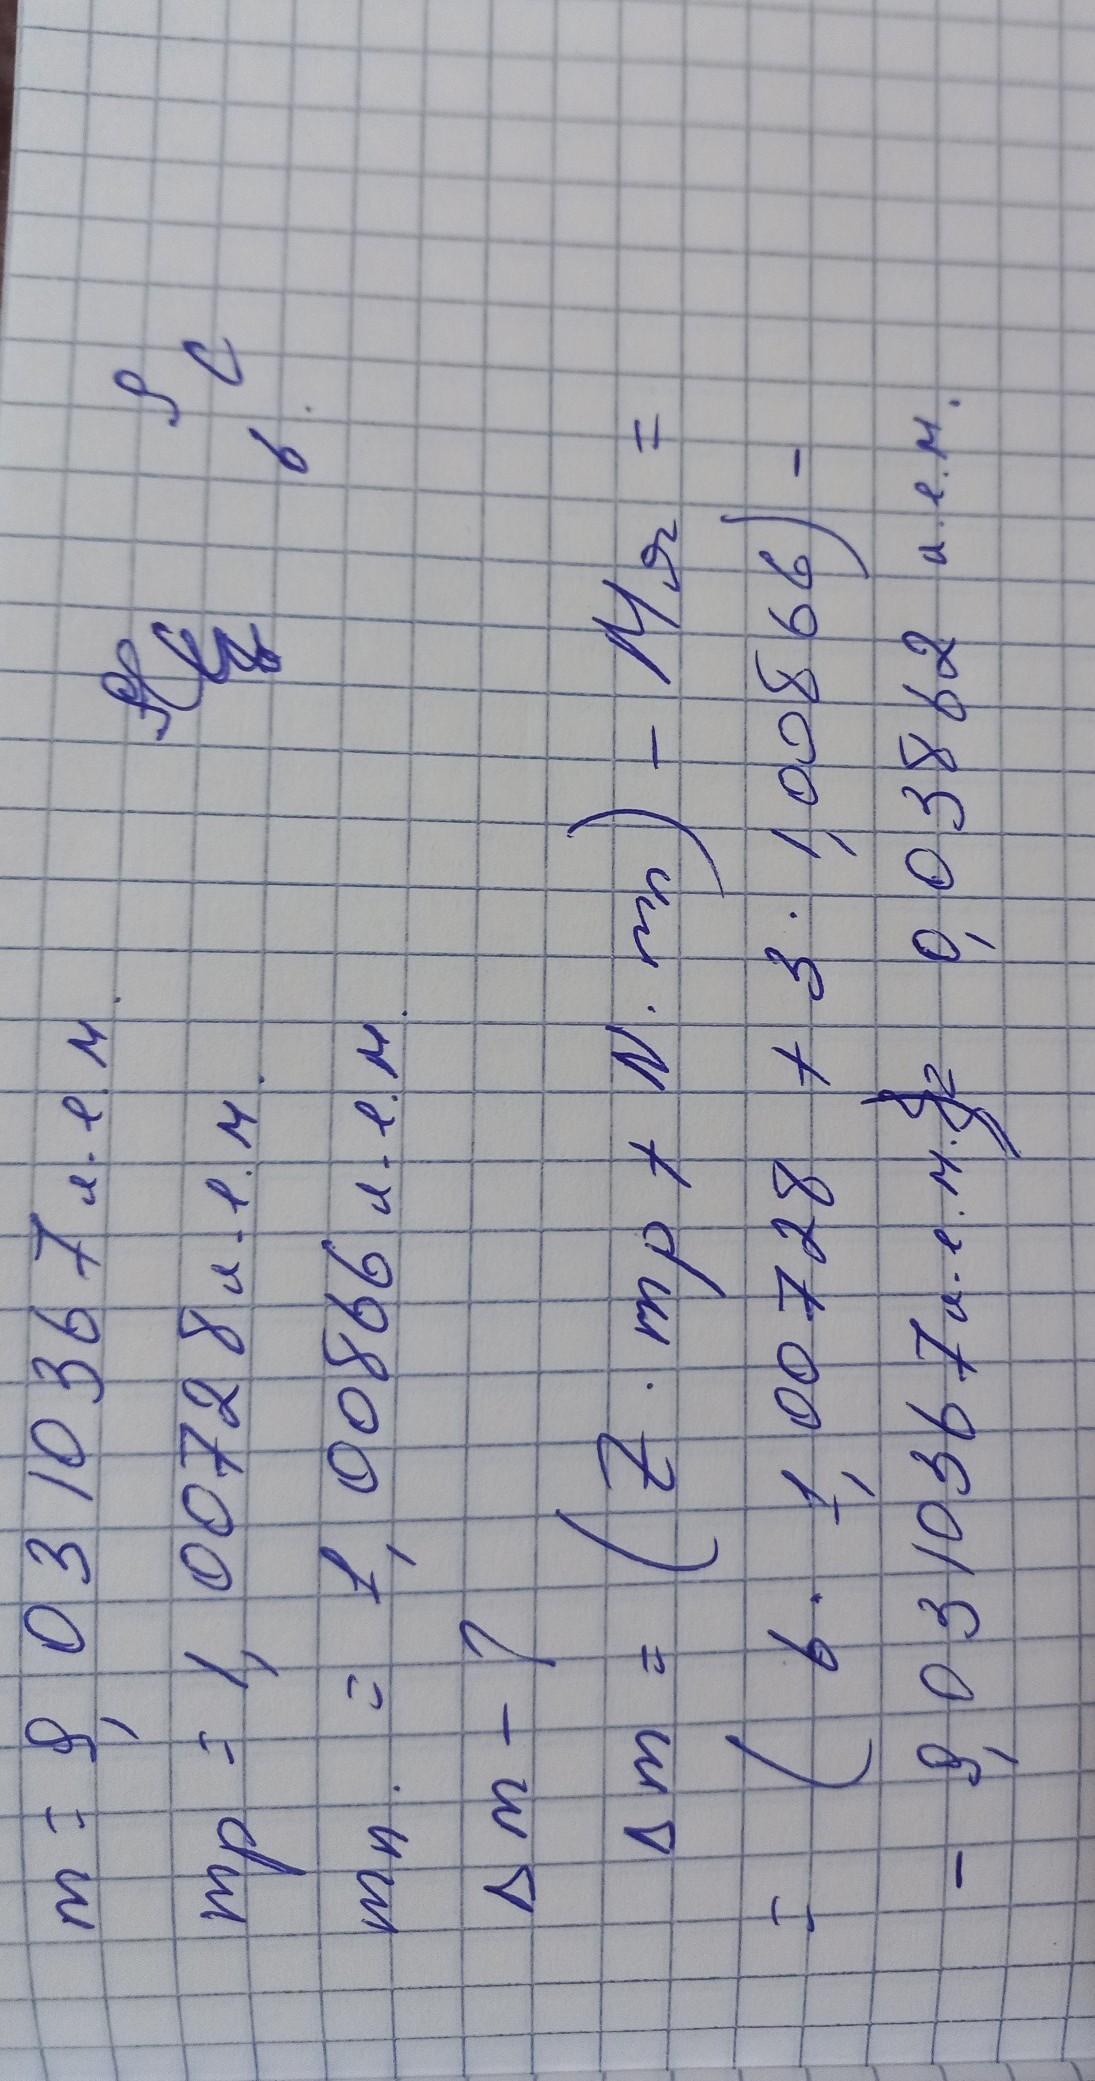 m = 9,0310367 а.е.м.
mp = 1,00728 а.е.м.
mn = 1,00866 а.е.м.
Δm - ?
9
C
6
Δm = (Z · mp + N · mn) - Mя =
= (6 · 1,00728 + 3 · 1,00866) -
- 9,0310367 а.е.м. 0,03862 а.е.м.